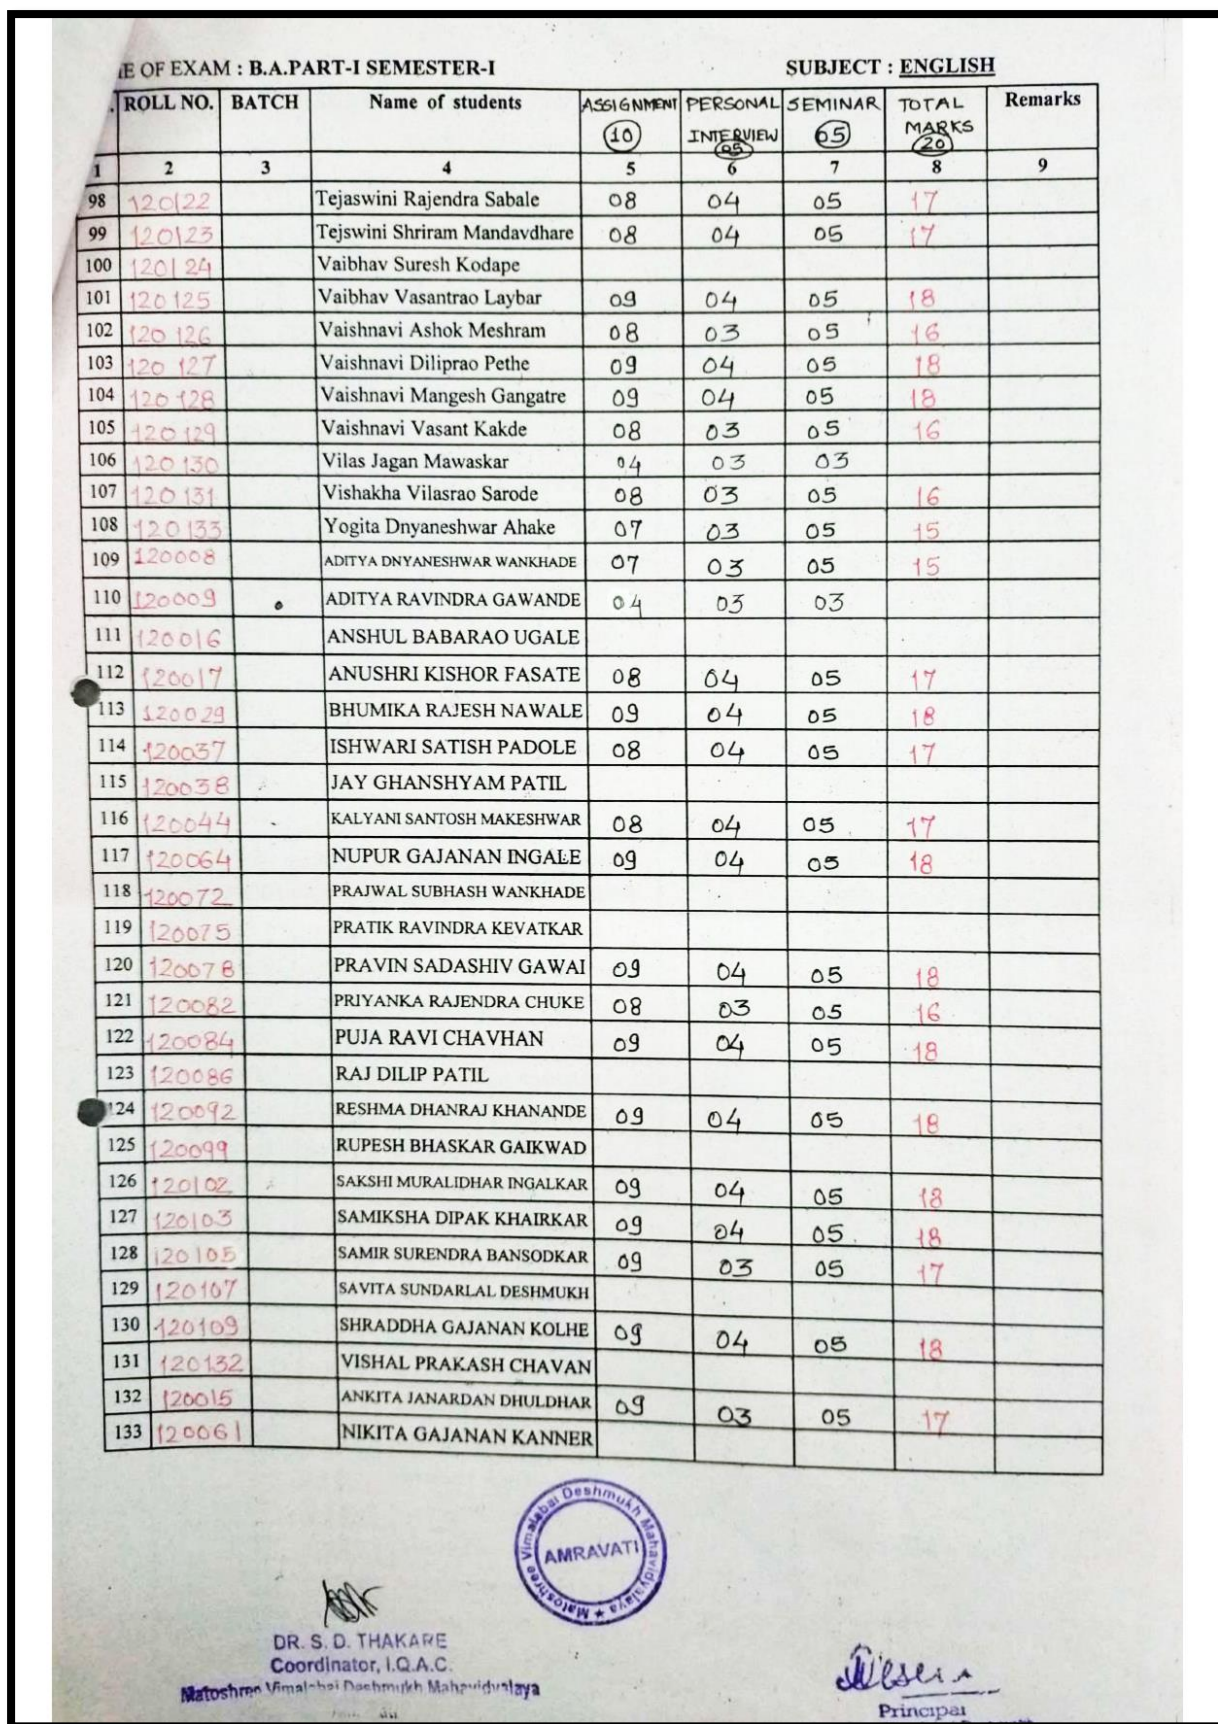 E OF EXAM : B.A.PART-I SEMESTER-I SUBJECT : ENGLISH
. ROLL NO. BATCH Name of students ASSIGNMENT 10 PERSONAL INTERVIEW 05 SEMINAR 05 TOTAL MARKS 20 Remarks
1 2 3 4 5 6 7 8 9
98 120122 Tejaswini Rajendra Sabale 08 04 05 17
99 120123 Tejswini Shriram Mandavdhare 08 04 05 17
100 120124 Vaibhav Suresh Kodape
101 120125 Vaibhav Vasantrao Laybar 09 04 05 18
102 120126 Vaishnavi Ashok Meshram 08 03 05 16
103 120127 Vaishnavi Diliprao Pethe 09 04 05 18
104 120128 Vaishnavi Mangesh Gangatre 09 04 05 18
105 120129 Vaishnavi Vasant Kakde 08 03 05 16
106 120130 Vilas Jagan Mawaskar 04 03 03
107 120131 Vishakha Vilasrao Sarode 08 03 05 16
108 120133 Yogita Dnyaneshwar Ahake 07 03 05 15
109 120008 ADITYA DNYANESHWAR WANKHADE 07 03 05 15
110 120009 ADITYA RAVINDRA GAWANDE 04 03 03
111 120016 ANSHUL BABARAO UGALE
112 120017 ANUSHRI KISHOR FASATE 08 04 05 17
113 120029 BHUMIKA RAJESH NAWALE 09 04 05 18
114 120037 ISHWARI SATISH PADOLE 08 04 05 17
115 120038 JAY GHANSHYAM PATIL
116 120044 KALYANI SANTOSH MAKESHWAR 08 04 05 17
117 120064 NUPUR GAJANAN INGALE 09 04 05 18
118 120072 PRAJWAL SUBHASH WANKHADE
119 120075 PRATIK RAVINDRA KEVATKAR
120 120078 PRAVIN SADASHIV GAWAI 09 04 05 18
121 120082 PRIYANKA RAJENDRA CHUKE 08 03 05 16
122 120084 PUJA RAVI CHAVHAN 09 04 05 18
123 120086 RAJ DILIP PATIL
124 120092 RESHMA DHANRAJ KHANANDE 09 04 05 18
125 120099 RUPESH BHASKAR GAIKWAD
126 120102 SAKSHI MURALIDHAR INGALKAR 09 04 05 18
127 120103 SAMIKSHA DIPAK KHAIRKAR 09 04 05 18
128 120105 SAMIR SURENDRA BANSODKAR 09 03 05 17
129 120107 SAVITA SUNDARLAL DESHMUKH
130 120109 SHRADDHA GAJANAN KOLHE 09 04 05 18
131 120132 VISHAL PRAKASH CHAVAN
132 120015 ANKITA JANARDAN DHULDHAR 09 03 05 17
133 120061 NIKITA GAJANAN KANNER
Matoshree Vimalabai Deshmukh Mahavidyalaya
AMRAVATI
DR. S. D. THAKARE
Coordinator, I.Q.A.C.
Matoshree Vimalabai Deshmukh Mahavidyalaya
Principal